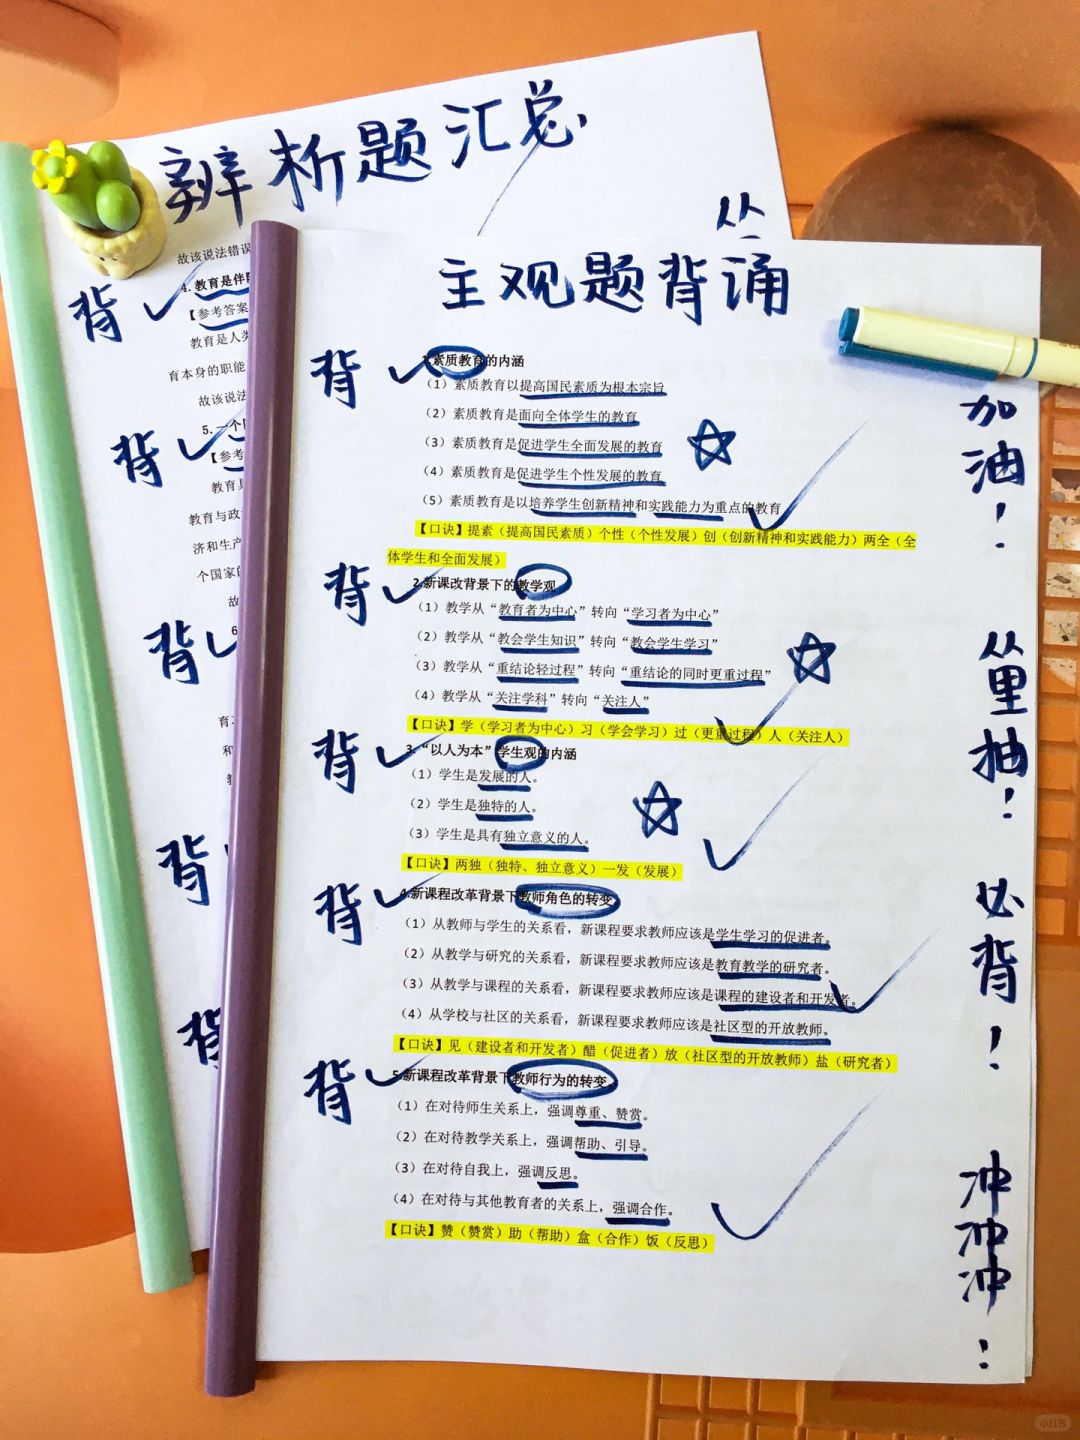 辨析题汇总
丛
故该说法错误
背
4. 教育是伴
【参考答案
教育是人类
育本身的职能
故该说法
背
5. 一个
【参考
教育具
教育与政
济和生产
个国家的
故
背
6
育
和
教
背
背
主观题背诵
背
1.素质教育的内涵
（1）素质教育以提高国民素质为根本宗旨
（2）素质教育是面向全体学生的教育
（3）素质教育是促进学生全面发展的教育
（4）素质教育是促进学生个性发展的教育
（5）素质教育是以培养学生创新精神和实践能力为重点的教育
【口诀】提素（提高国民素质）个性（个性发展）创（创新精神和实践能力）两全（全
体学生和全面发展）
背
2.新课改背景下的教学观
（1）教学从“教育者为中心”转向“学习者为中心”
（2）教学从“教会学生知识”转向“教会学生学习”
（3）教学从“重结论轻过程”转向“重结论的同时更重过程”
（4）教学从“关注学科”转向“关注人”
【口诀】学（学习者为中心）习（学会学习）过（更重过程）人（关注人）
背
3.“以人为本”学生观的内涵
（1）学生是发展的人。
（2）学生是独特的人。
（3）学生是具有独立意义的人。
【口诀】两独（独特、独立意义）一发（发展）
背
4.新课程改革背景下教师角色的转变
（1）从教师与学生的关系看，新课程要求教师应该是学生学习的促进者。
（2）从教学与研究的关系看，新课程要求教师应该是教育教学的研究者。
（3）从教学与课程的关系看，新课程要求教师应该是课程的建设者和开发者。
（4）从学校与社区的关系看，新课程要求教师应该是社区型的开放教师。
【口诀】见（建设者和开发者）醋（促进者）放（社区型的开放教师）盐（研究者）
背
5.新课程改革背景下教师行为的转变
（1）在对待师生关系上，强调尊重、赞赏。
（2）在对待教学关系上，强调帮助、引导。
（3）在对待自我上，强调反思。
（4）在对待与其他教育者的关系上，强调合作。
【口诀】赞（赞赏）助（帮助）盒（合作）饭（反思）
加油！
丛里抽！
必背！
冲冲冲！
小红书